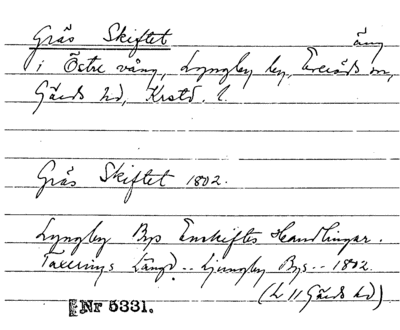 Gräs Skiftet äng
i Östre vång, Lyngby by, Everöds sn,
Gärds hd, Krstd. l.
Gräs Skiftet 1802.
Lyngby Bys Enskiftes Handlingar.
Taxerings Längd .. Ljungby Bys .. 1802.
(L 11 Gärds hd)
Nr 5331.